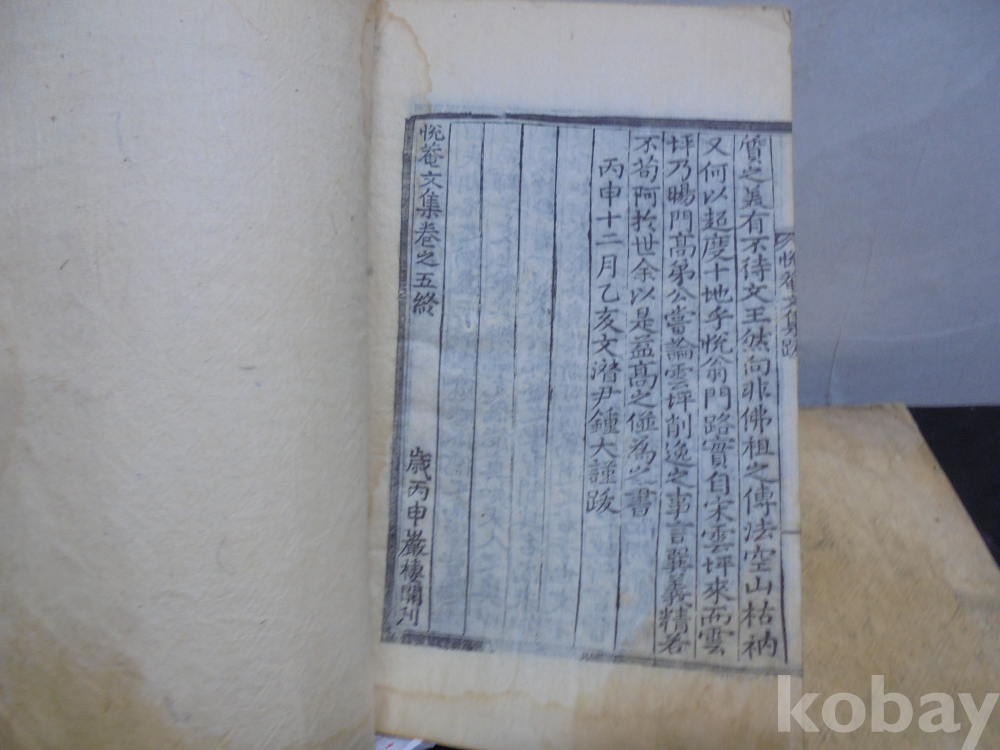 悅菴文集跋
質之美有不待文王然向非佛祖之傳法空山枯衲
又何以超度十地乎悅翁門路實自宋雲坪來而雲
坪乃暘門高弟公嘗論雲坪削逸之事言巽義精若
不苟阿於世余以是益高之僅為之書
丙申十二月乙亥文潛尹鍾大謹跋
悅菴文集卷之五終
歲丙申巖棲開刊
kobay